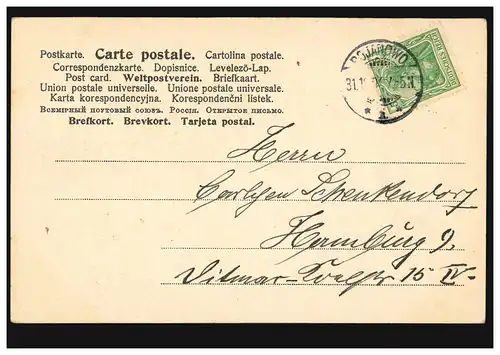 Postkarte. Carte postale. Cartolina postale.
Correspondenzkarte. Dopisnice. Levelező-Lap.
Post card. Weltpostverein. Briefkaart.
Union postale universelle. Unione postale universale.
Karta korespondencyjna. Korespondenčni listek.
Всемірный почтовый союзъ. Россія. Открытое письмо.
Brefkort. Brevkort. Tarjeta postal.
BOJANOWO
31.12
Herrn
Carlchen Schenkendorf
Hamburg 9.
Ditmar-Koelstr 15 IV.